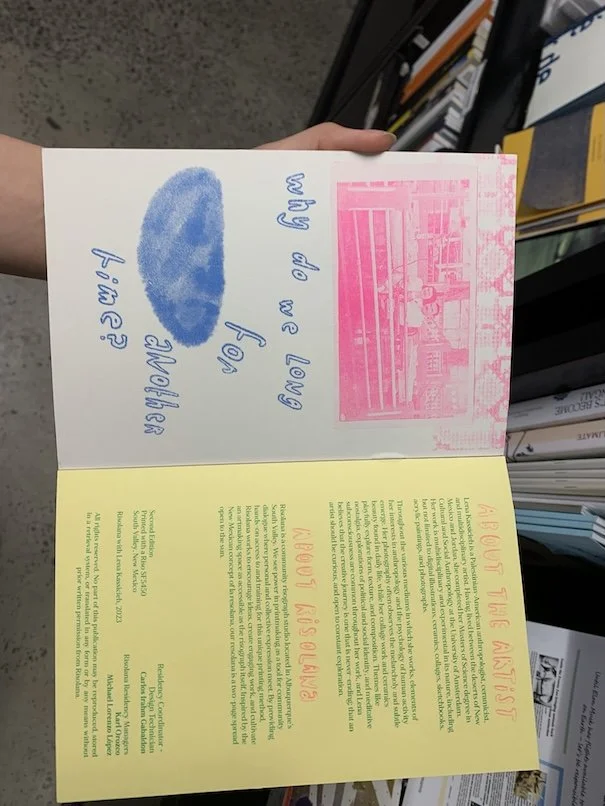 why do we long
for
another
time?
ABOUT THE ARTIST
Lena Kassicieh is a Palestinian-American anthropologist, ceramist,
and multidisciplinary artist. Having lived between the deserts of New
Mexico and Jordan, she completed her Masters of Science degree in
Cultural and Social Anthropology at the University of Amsterdam.
Her work is multidisciplinary and experimental in its nature, including
but not limited to digital illustration, ceramics, collages, sketchbooks,
acrylic paintings, and photography.
Throughout the various mediums in which she works, elements of
her interests in anthropology and the psychology of human activity
emerge. Her photography often observes the melancholy and subtle
beauty found in daily life, while her collage work and ceramics
playfully explore form, texture, and composition. Themes like
nostalgia, exploration of political and social identities, and meditative
subconsciousness are constants throughout her work, and Lena
believes that the creative journey is one that is never-ending; that an
artist should be curious, and open to constant exploration.
ABOUT RISOLANA
Risolana is a community risograph studio located in Albuquerque's
South Valley. We see power in printmaking as a tool for community
dialogue where personal and collective expression meet. By providing
hands-on access to and training for this unique printing method,
Risolana works to encourage ideas, create engaging work, and cultivate
an artmaking space as accessible as the risograph itself. Inspired by the
New Mexican concept of la resolana, our resolana is a two-page spread
open to the sun.
Second Edition
Printed with a Riso SF5450
South Valley, New Mexico
Risolana with Lena Kassicieh, 2023
Residency Coordinator –
Design Technician
Carlos Irulan Gabaldon
Risolana Residency Managers
Karl Orozco
Michael Lorenzo López
All rights reserved. No part of this publication may be reproduced, stored
in a retrieval system, or translated in any form or by any means without
prior written permission from Risolana.
S BECOME
CLIMATE